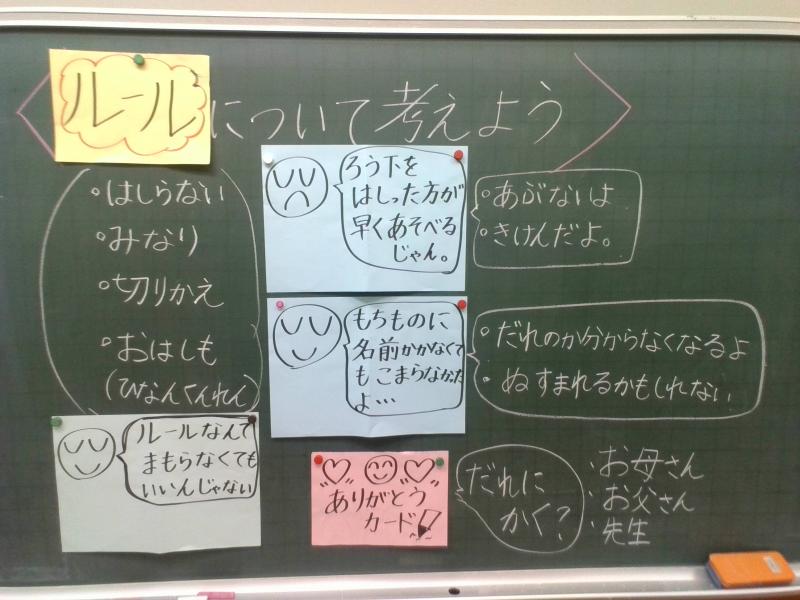 ルールについて考えよう
・はしらない
・みなり
・切りかえ
・おはしも
(ひなんくんれん)
ろう下を
はしった方が
早くあそべる
じゃん。
・あぶないよ
・きけんだよ。
もちものに
名前かかなくて
もこまらなかった
よ…
・だれのか分からなくなるよ
・ぬすまれるかもしれない
ルールなんて
まもらなくても
いいんじゃない
ありがとう
カード
だれに
かく?
・お母さん
・お父さん
・先生